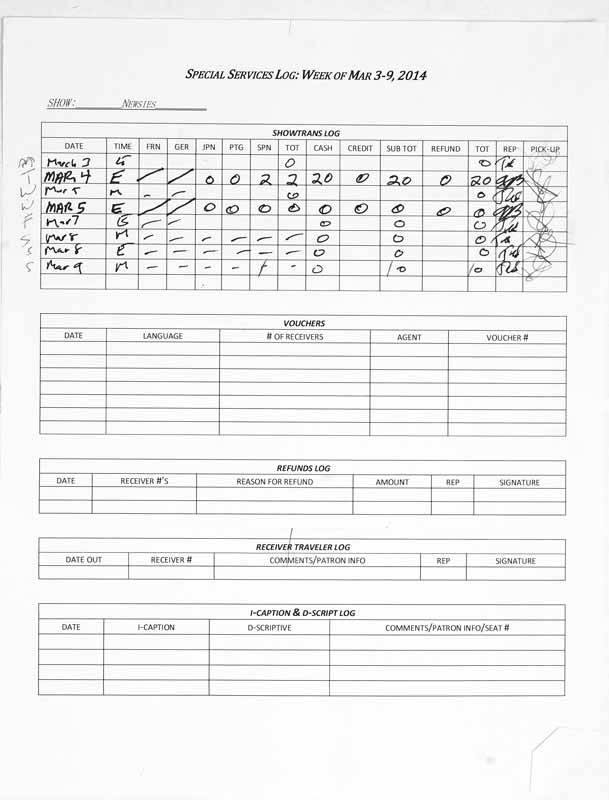 SPECIAL SERVICES LOG: WEEK OF MAR 3-9, 2014
SHOW: NEWSIES
SHOWTRANS LOG
DATE TIME FRN GER JPN PTG SPN TOT CASH CREDIT SUB TOT REFUND TOT REP PICK-UP
March 3 0 0
MAR 4 E / / 0 0 2 2 20 0 20 0 20
Mar 5 M - - 0 0
MAR 5 E / / 0 0 0 0 0 0 0 0 0
Mar 7 - - 0 0 0
Mar 8 M - - - - - - 0 0 0
Mar 8 E - - - - - - 0 0 0
Mar 9 M - - - - 1 - 0 10 10
VOUCHERS
DATE LANGUAGE # OF RECEIVERS AGENT VOUCHER #
REFUNDS LOG
DATE RECEIVER #'S REASON FOR REFUND AMOUNT REP SIGNATURE
RECEIVER TRAVELER LOG
DATE OUT RECEIVER # COMMENTS/PATRON INFO REP SIGNATURE
I-CAPTION & D-SCRIPT LOG
DATE I-CAPTION D-SCRIPTIVE COMMENTS/PATRON INFO/SEAT #